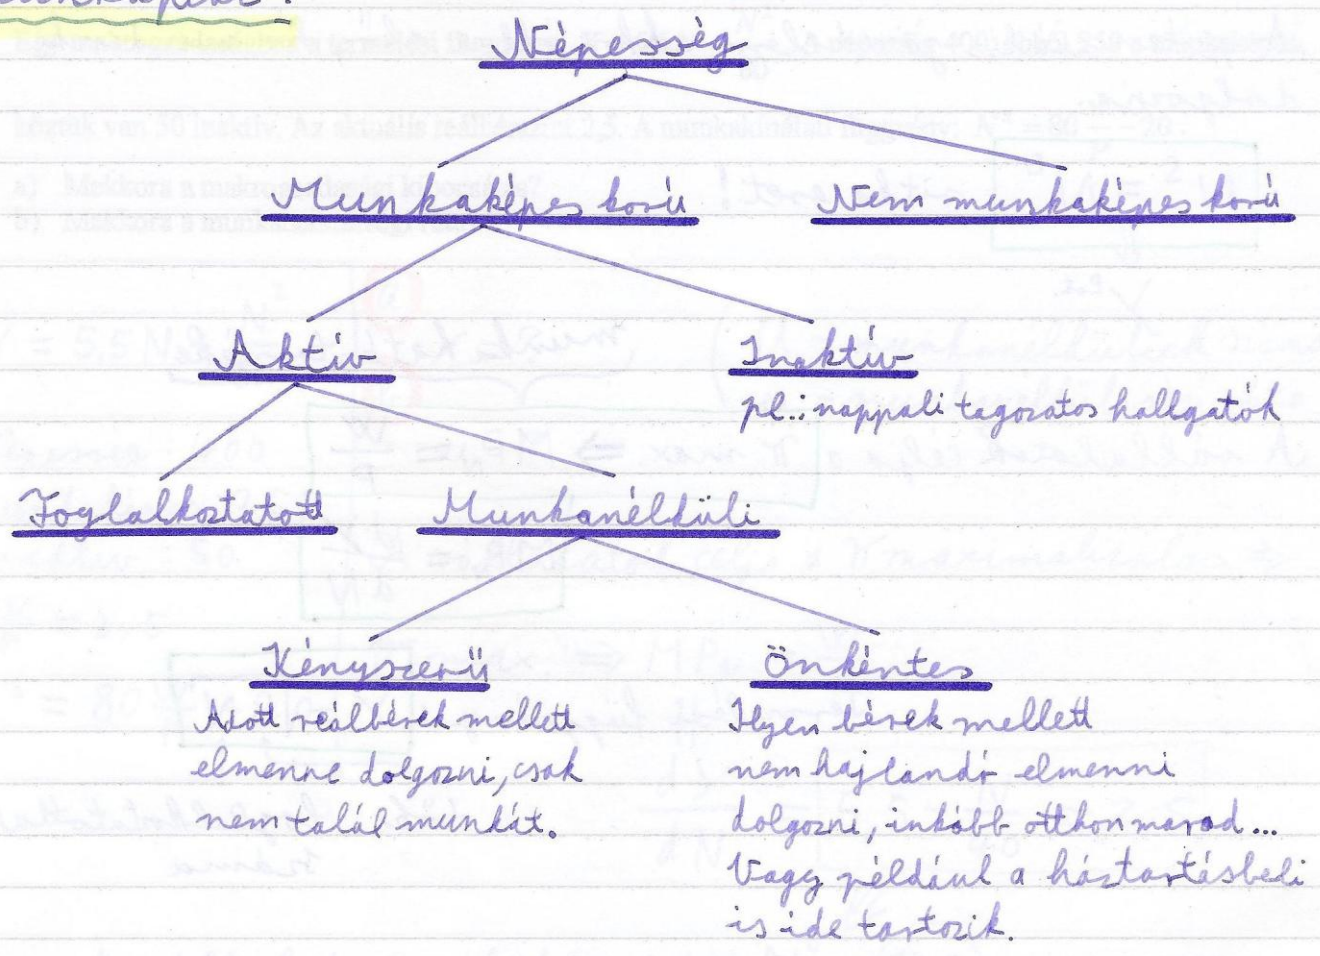 Népesség
Munkaképes korú
Nem munkaképes korú
Aktív
Inaktív
pl.: nappali tagozatos hallgatók
Foglalkoztatott
Munkanélküli
Kényszerű
Adott reálbérek mellett
elmenne dolgozni, csak
nem talál munkát.
Önkéntes
Ilyen bérek mellett
nem hajlandó elmenni
dolgozni, inkább otthon marad...
Vagy például a háztartásbeli
is ide tartozik.